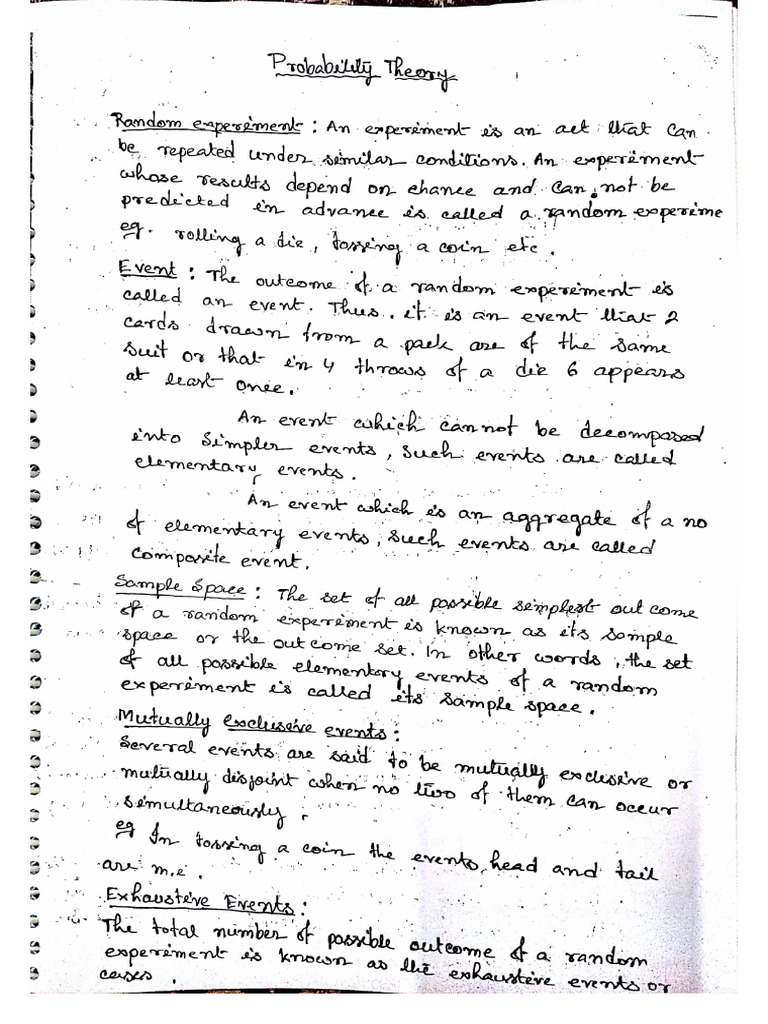 Probability Theory
Random experiment : An experiment is an act that can
be repeated under similar conditions. An experiment
whose results depend on chance and can not be
predicted in advance is called a random experime
eg. rolling a die, tossing a coin etc.
Event : The outcome of a random experiment is
called an event. Thus, it is an event that 2
cards drawn from a pack are of the same
suit or that in 4 throws of a die 6 appears
at least once.
An event which cannot be decomposed
into simpler events, such events are called
elementary events.
An event which is an aggregate of a no
of elementary events, such events are called
composite event.
Sample Space : The set of all possible simplest outcome
of a random experiment is known as its sample
space or the outcome set. In other words, the set
of all possible elementary events of a random
experiment is called its sample space.
Mutually exclusive events :
Several events are said to be mutually exclusive or
mutually disjoint when no two of them can occur
simultaneously.
eg In tossing a coin the events, head and tail
are m.e.
Exhaustive Events :
The total number of possible outcome of a random
experiment is known as the exhaustive events or
cases.